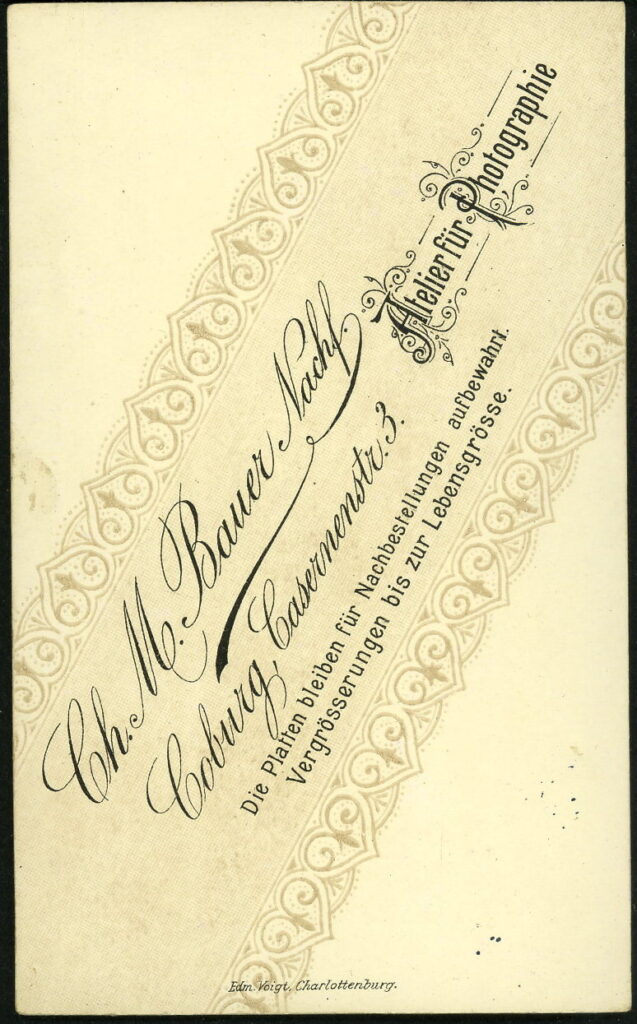 Atelier für Photographie
Ch. M. Bauer Nachf.
Coburg, Casernenstr. 3.
Die Platten bleiben für Nachbestellungen aufbewahrt.
Vergrösserungen bis zur Lebensgrösse.
Edm. Voigt, Charlottenburg.